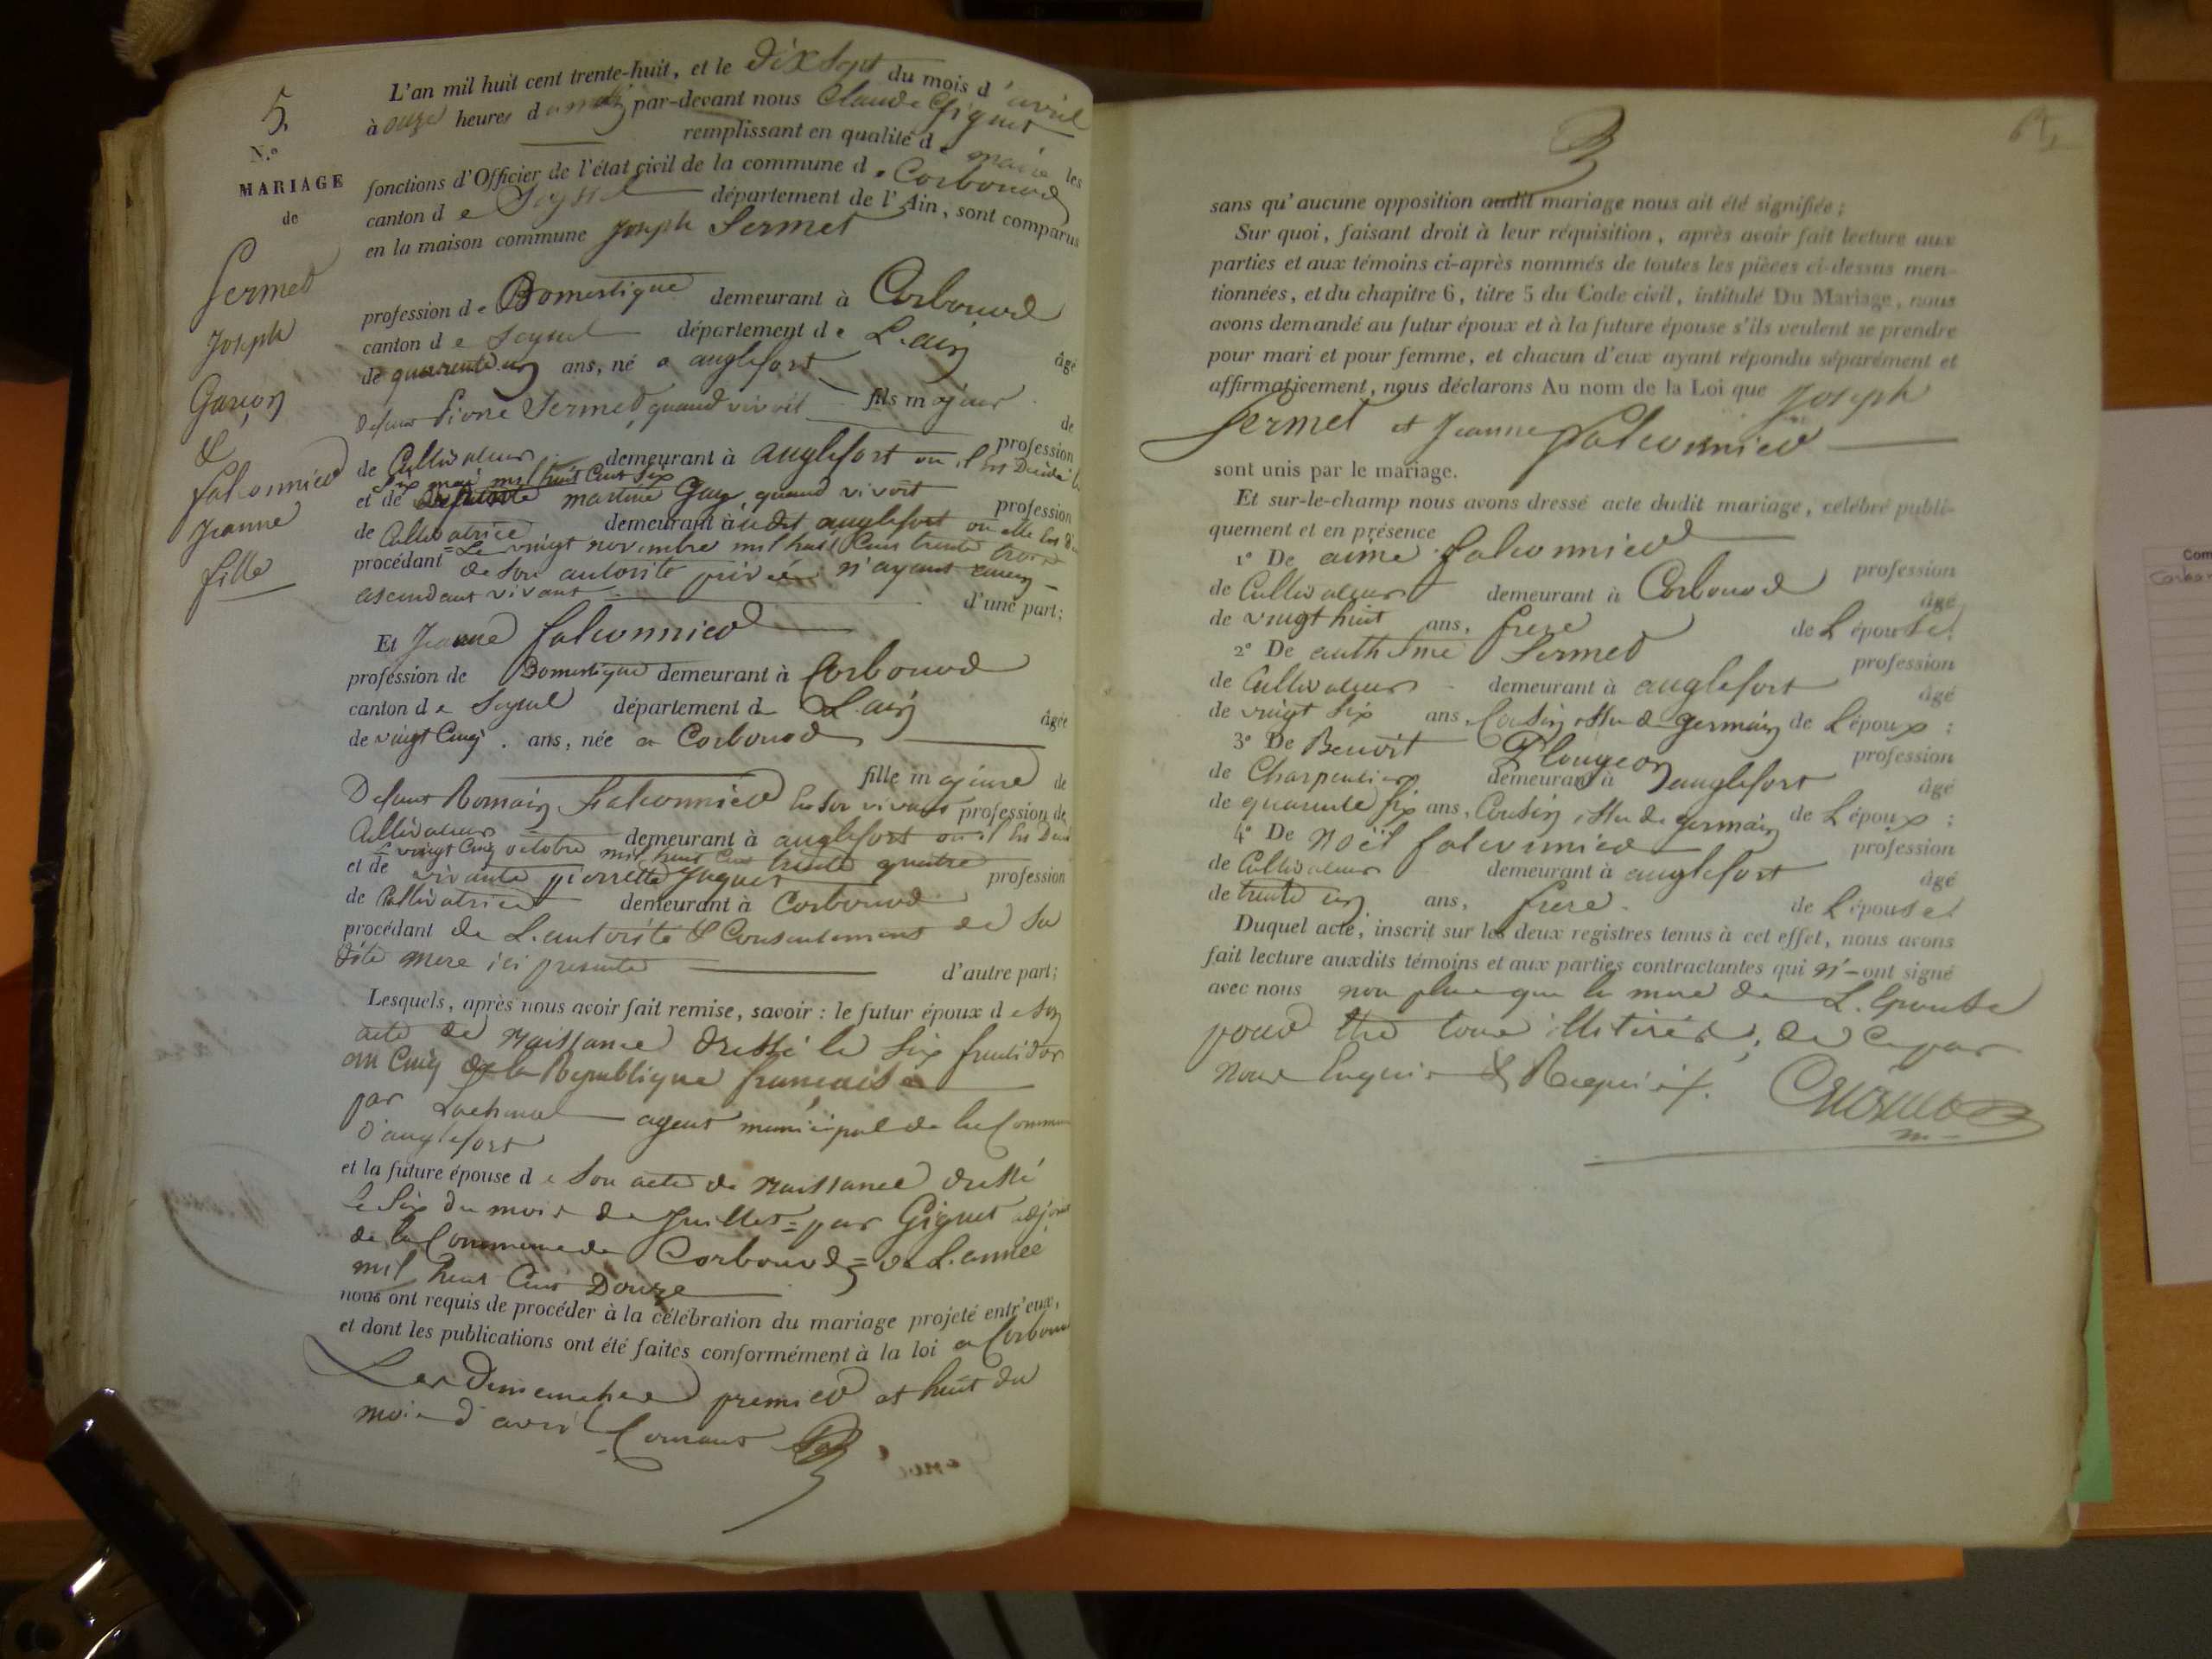 5.
N.º
MARIAGE
de
Sermet
Joseph
Garçon
&
falconnier
Jeanne
fille
L'an mil huit cent trente-huit, et le dix Sept du mois d'avril
à onze heures du matin par-devant nous Claude Giguet
remplissant en qualité de maire les
fonctions d'Officier de l'état civil de la commune de Corbonod
canton de Seyssel département de l'Ain, sont comparus
en la maison commune Joseph Sermet
profession de Domestique demeurant à Corbonod
canton de Seyssel département de L'ain âgé
de quarante un ans, né a anglefort
fils majeur de
defunt Pierre Sermet, quand vivoit profession
de Cultivateur demeurant à anglefort ou il est Décédé le
Six mai mil huit Cent Six
et de martine Guy quand vivoit profession
de Cultivatrice demeurant à udit anglefort ou elle est
Le vingt novembre mil huit Cent trente trois
procédant de Son autorité privée n'ayant aucun
ascendant vivant d'une part;
Et Jeanne falconnier
profession de Domestique demeurant à Corbonod
canton de Seyssel département de L'ain âgée
de vingt Cinq ans, née a Corbonod
fille majeure de
Defunt Romain falconnier en Son vivant profession de
Cultivateur demeurant à anglefort ou il est
Le vingt Cinq octobre mil huit Cent trente quatre
et de vivante pierrette Juguet profession
de Cultivatrice demeurant à Corbonod
procédant de L'autorité & Consentement de Sa
dite mere ici presente d'autre part;
Lesquels, après nous avoir fait remise, savoir : le futur époux de Son
acte de naissance dressé le Six fructidor
an Cinq de la Republique française
par agent municipal de la Commune
D'anglefort
et la future épouse de Son acte de naissance dressé
le Six du mois de Juillet = par Giguet adjoint
de la Commune de Corbonod = de L'année
mil huit Cent Douze
nous ont requis de procéder à la célébration du mariage projeté entr'eux,
et dont les publications ont été faites conformément à la loi a Corbonod
Les Dimanches premier et huit du
mois d'avril Courant
sans qu'aucune opposition audit mariage nous ait été signifiée ;
Sur quoi, faisant droit à leur réquisition, après avoir fait lecture aux
parties et aux témoins ci-après nommés de toutes les pièces ci-dessus men-
tionnées, et du chapitre 6, titre 5 du Code civil, intitulé Du Mariage, nous
avons demandé au futur époux et à la future épouse s'ils veulent se prendre
pour mari et pour femme, et chacun d'eux ayant répondu séparément et
affirmativement, nous déclarons Au nom de la Loi que Joseph
Sermet et Jeanne falconnier
sont unis par le mariage.
Et sur-le-champ nous avons dressé acte dudit mariage, célébré publi-
quement et en présence
1º De aimé falconnier profession
de Cultivateur demeurant à Corbonod âgé
de vingt huit ans, frere de L'épouse;
2º De anthelme Sermet profession
de Cultivateur demeurant à anglefort âgé
de vingt Six ans, Cousin issu de germain de L'époux ;
3º De Benoit Plongeon profession
de Charpentier demeurant à anglefort âgé
de quarante Six ans, Cousin issu de germain de L'époux ;
4º De Noël falconnier profession
de Cultivateur demeurant à anglefort âgé
de trente un ans, frere de L'épouse.
Duquel acte, inscrit sur les deux registres tenus à cet effet, nous avons
fait lecture auxdits témoins et aux parties contractantes qui n'ont signé
avec nous non plus que la mere de L'épouse
pour être tous illitirés, de ce par
nous Enquis & Requis.